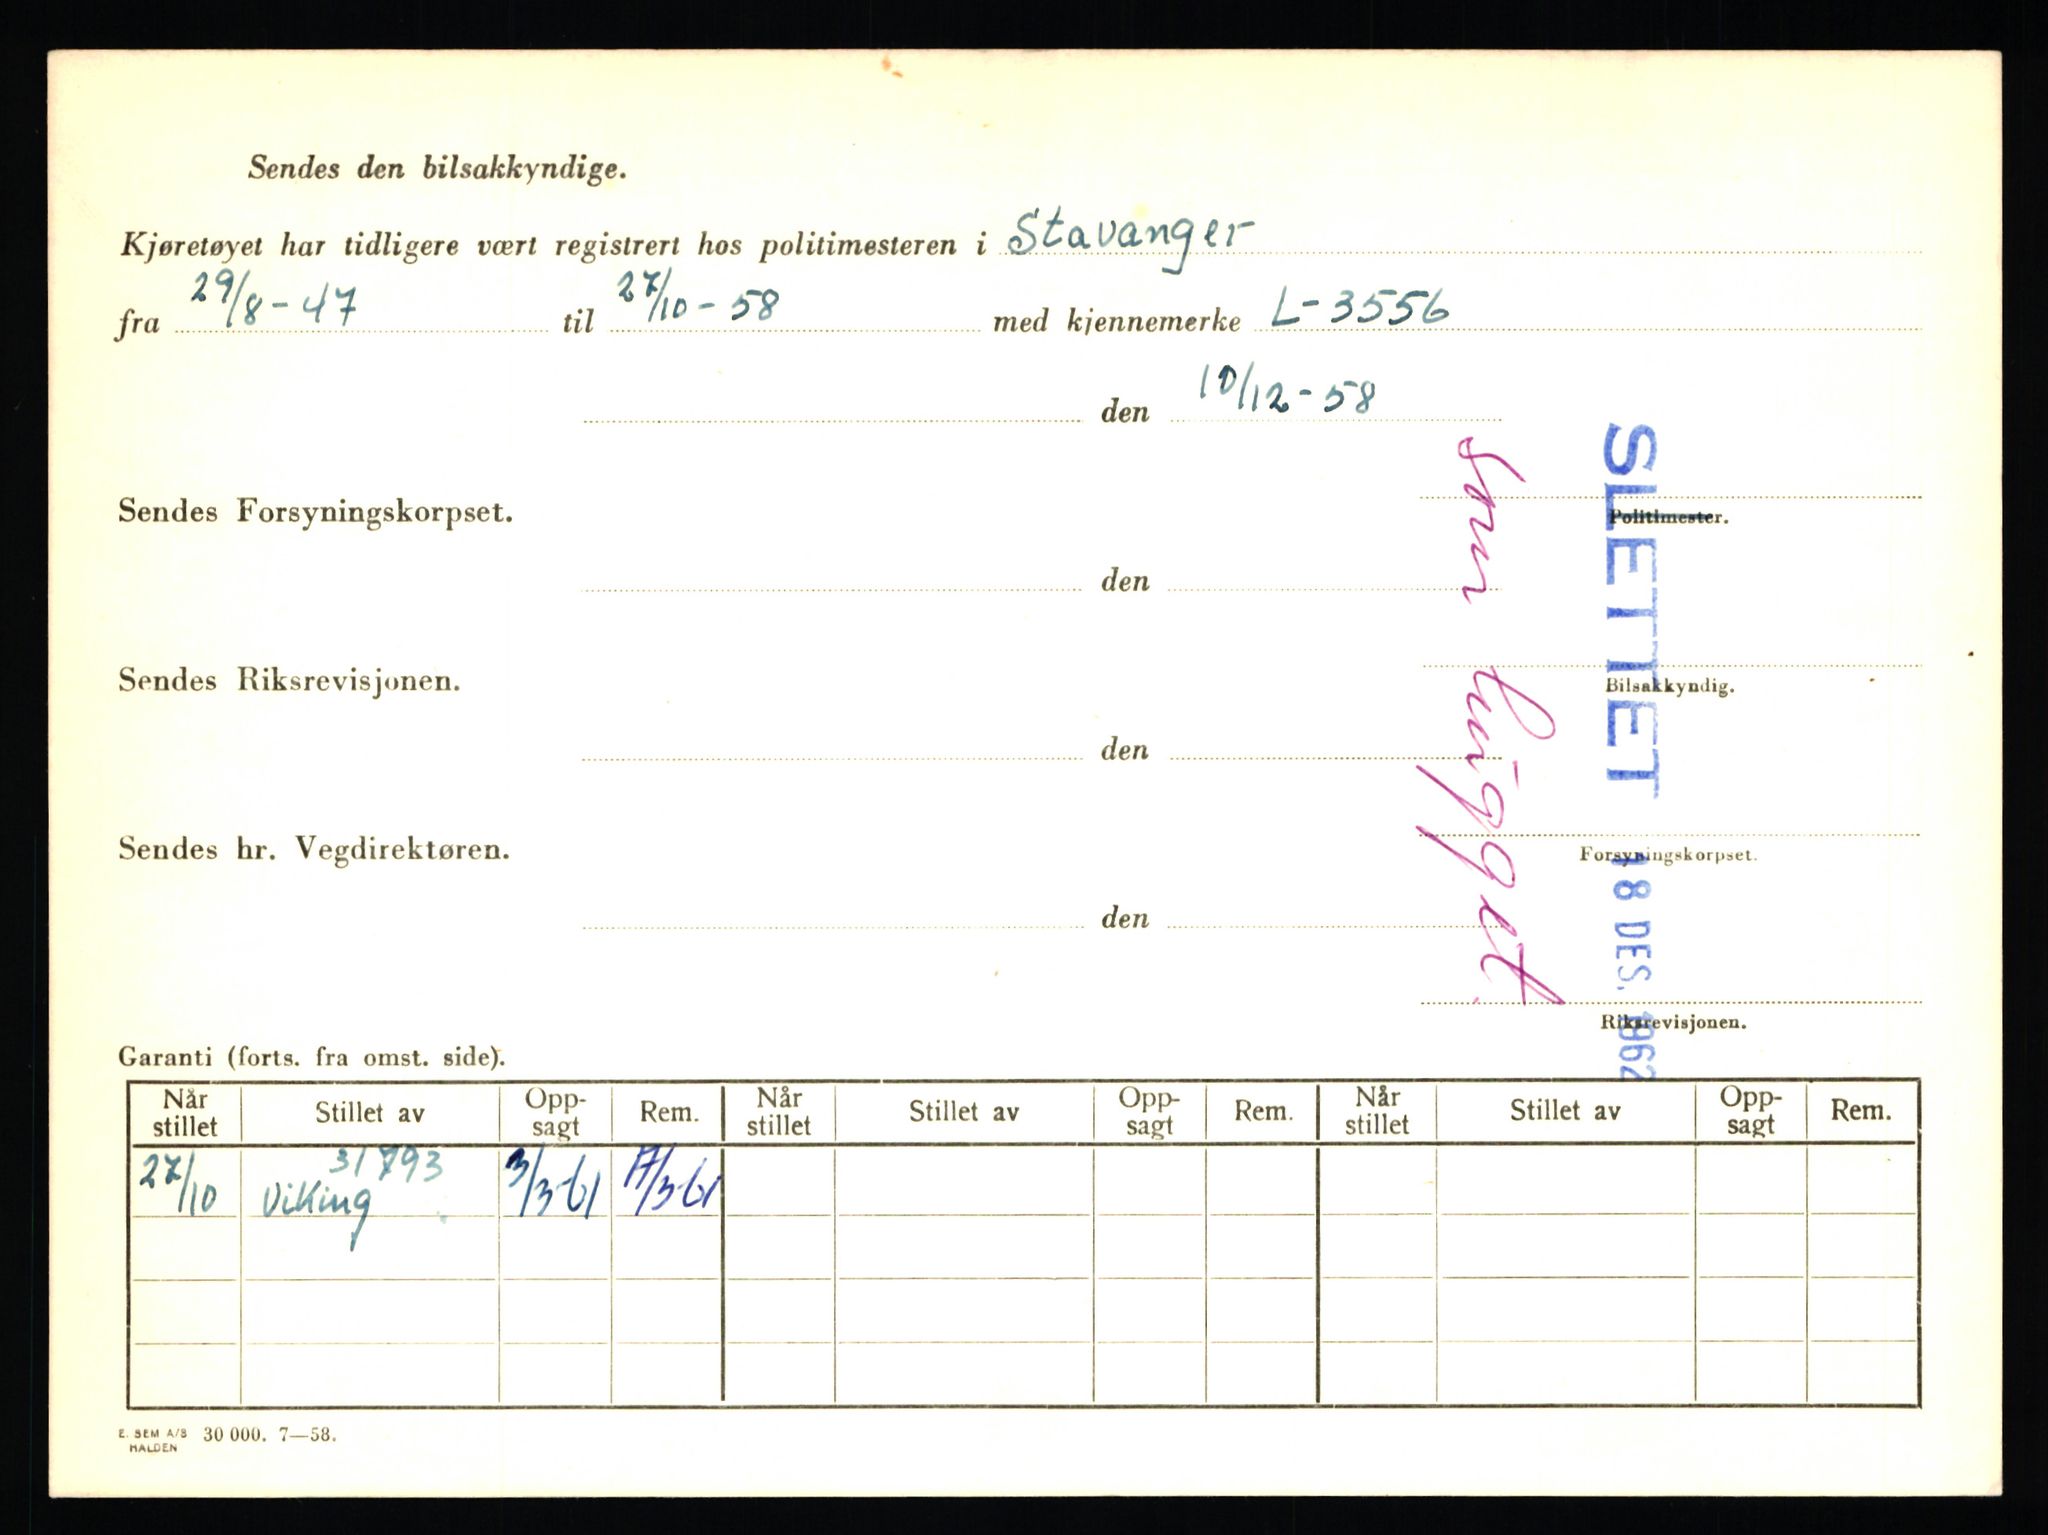 Sendes den bilsakkyndige.
Kjøretøyet har tidligere vært registrert hos politimesteren i Stavanger
fra 29/8-47 til 27/10-58 med kjennemerke L-3556
den 10/12-58
Politimester.
Sendes Forsyningskorpset.
den
Bilsakkyndig.
Sendes Riksrevisjonen.
den
Forsyningskorpset.
Sendes hr. Vegdirektøren.
den
Riksrevisjonen.
som hugget.
SLETTET
18 DES. 1962
Garanti (forts. fra omst. side).
Når stillet Stillet av Opp-sagt Rem. Når stillet Stillet av Opp-sagt Rem. Når stillet Stillet av Opp-sagt Rem.
27/10 Viking 31793 3/3-61 17/3-61
E. SEM A/S HALDEN 30 000. 7—58.